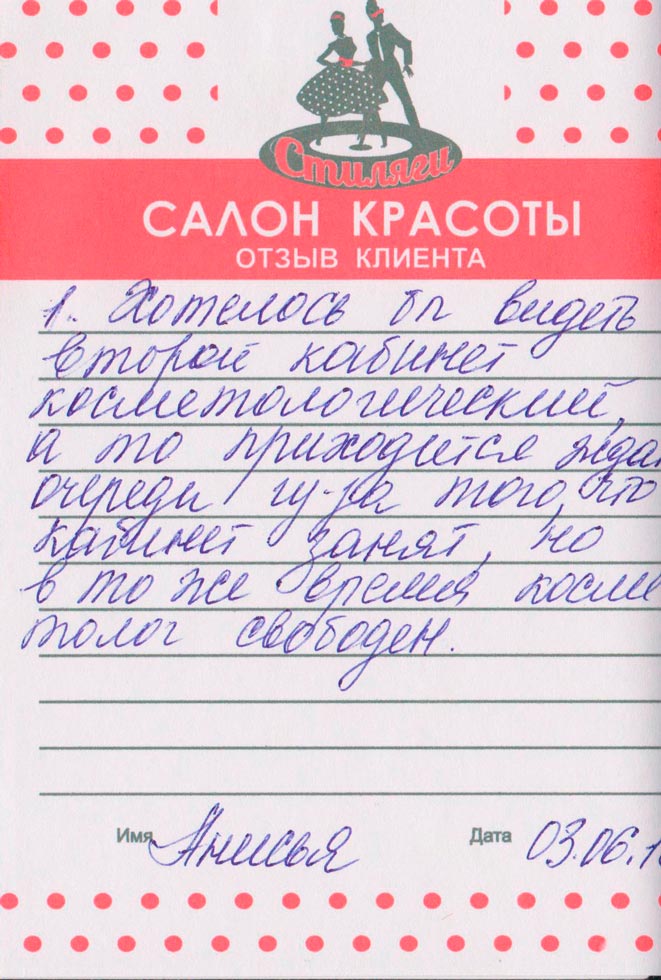 Стиляги
САЛОН КРАСОТЫ
ОТЗЫВ КЛИЕНТА
1. Хотелось бы видеть
второй кабинет
косметологический,
а то приходится ждат
очереди из-за того, что
кабинет занят, но
в то же время косме
толог свободен.
Имя Анисья Дата 03.06.1